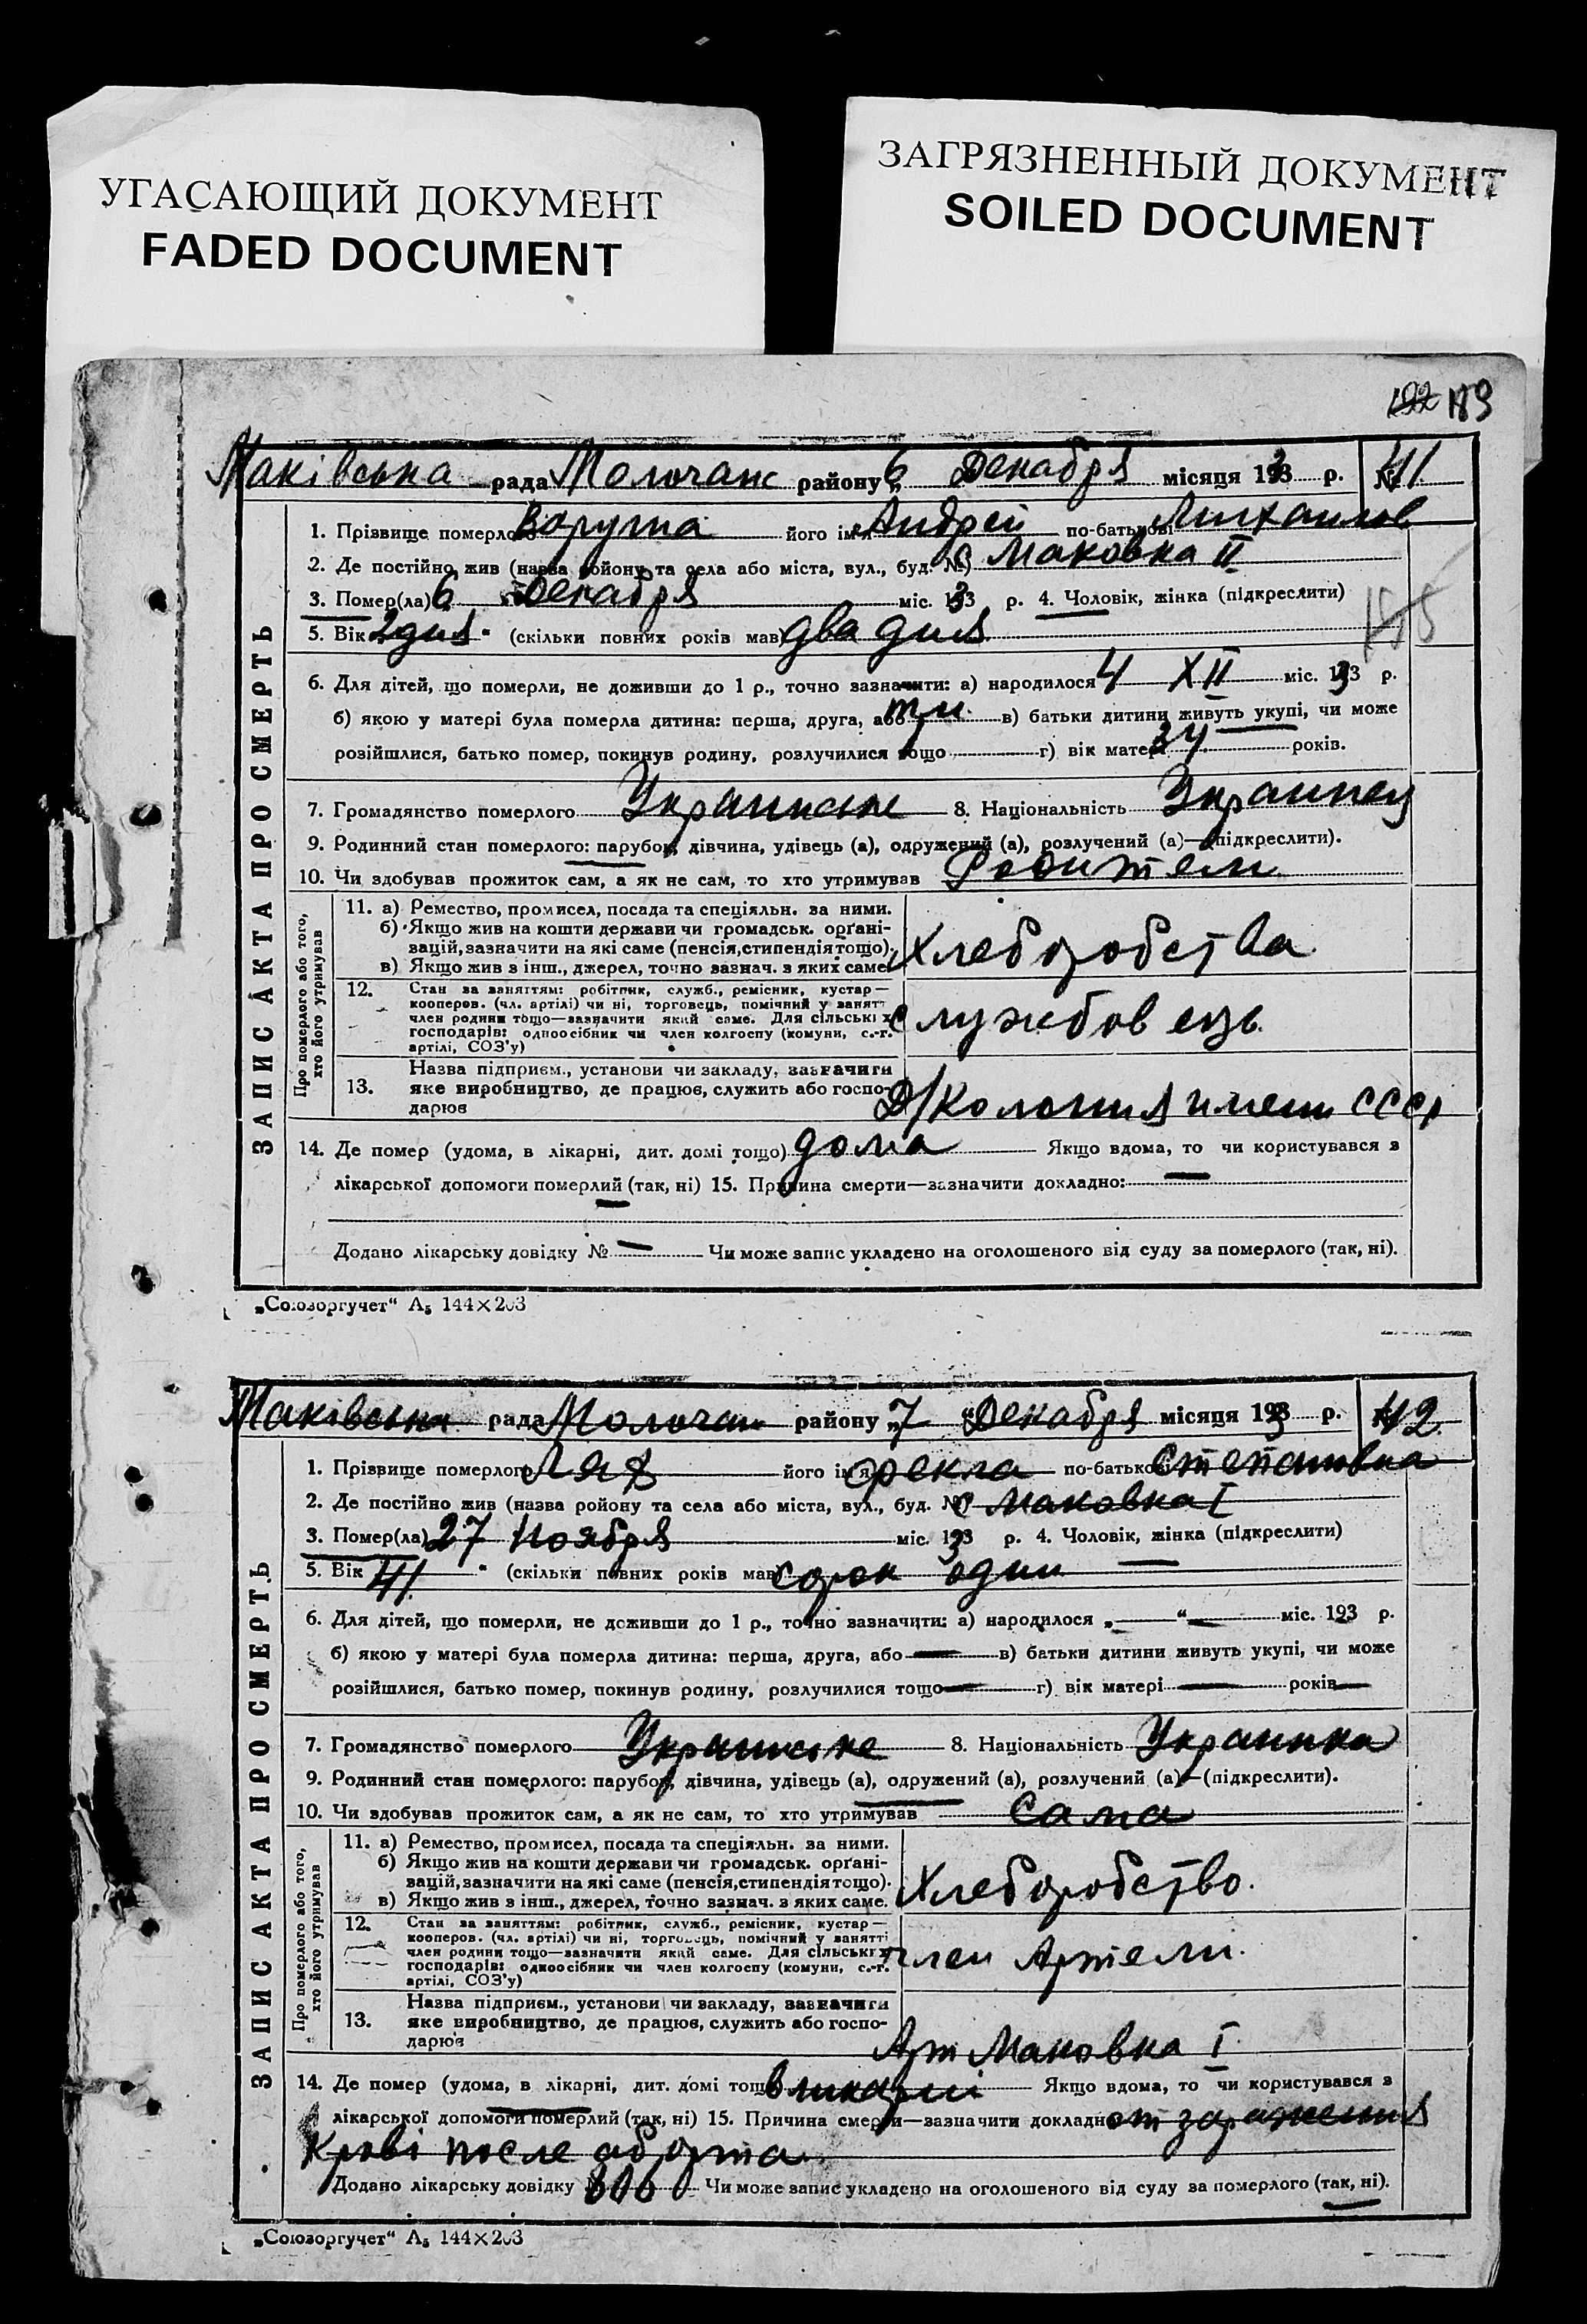 УГАСАЮЩИЙ ДОКУМЕНТ
FADED DOCUMENT
ЗАГРЯЗНЕННЫЙ ДОКУМЕНТ
SOILED DOCUMENT
192 189
Маківська рада Молочанс району „6 Декабря місяця 1933 р. № 41.
185
ЗАПИС АКТА ПРО СМЕРТЬ
1. Прізвище померлого Ворута його ім'я Андрей по-батькові Михаилов
2. Де постійно жив (назва району та села або міста, вул., буд. №) с Маковка II
3. Помер(ла) 6 Декабря міс. 1933 р. 4. Чоловік, жінка (підкреслити)
5. Вік 2 дня " (скільки повних років мав) два дня
6. Для дітей, що померли, не доживши до 1 р., точно зазначити: а) народилося 4 XII міс. 1933 р.
б) якою у матері була померла дитина: перша, друга, або три в) батьки дитини живуть укупі, чи може
розійшлися, батько помер, покинув родину, розлучилися тощо г) вік матері 34 років.
7. Громадянство померлого Украинське 8. Національність Украинец
9. Родинний стан померлого: парубок, дівчина, удівець (а), одружений (а), розлучений (а)—(підкреслити).
10. Чи здобував прожиток сам, а як не сам, то хто утримував Родители
Про померлого або того, хто його утримував
11. а) Ремество, промисел, посада та спеціяльн. за ними.
б) Якщо жив на кошти держави чи громадськ. орґані-
вацій, зазначити на які саме (пенсія, стипендія тощо).
в) Якщо жив з інш., джерел, точно зазнач. з яких саме.
Хлеборобства
12. Стан за заняттям: робітник, служб., ремісник, кустар—
кооперов. (чл. артілі) чи ні, торговець, помічний у занятт
член родини тощо—зазначити який саме. Для сільських
господарів: одноосібник чи член колгоспу (комуни, с.-г.
артілі, СОЗ'у)
Службовець
13. Назва підприєм., установи чи закладу, зазначити
яке виробництво, де працює, служить або госпо-
дарює
Д/Колония имени СССР
14. Де помер (удома, в лікарні, дит. домі тощо) дома Якщо вдома, то чи користувався з
лікарської допомоги померлий (так, ні) 15. Причина смерти—зазначити докладно: —
Додано лікарську довідку № — Чи може запис укладено на оголошеного від суду за померлого (так, ні).
„Союзоргучет“ А₅ 144×203
Маківська рада Молочан району „7 “Декабря місяця 1933 р. № 42.
ЗАПИС АКТА ПРО СМЕРТЬ
1. Прізвище померлого його ім'я Фекла по-батькові Степановна
2. Де постійно жив (назва району та села або міста, вул., буд. №) с Маковка I
3. Помер(ла) 27 Ноября міс. 1933 р. 4. Чоловік, жінка (підкреслити)
5. Вік 41 " (скільки повних років мав) сорок один
6. Для дітей, що померли, не доживши до 1 р., точно зазначити: а) народилося „—“ — міс. 193 р.
б) якою у матері була померла дитина: перша, друга, або — в) батьки дитини живуть укупі, чи може
розійшлися, батько помер, покинув родину, розлучилися тощо — г) вік матері — років —
7. Громадянство померлого Украинське 8. Національність Украинка
9. Родинний стан померлого: парубок, дівчина, удівець (а), одружений (а), розлучений (а)—(підкреслити).
10. Чи здобував прожиток сам, а як не сам, то хто утримував Сама
Про померлого або того, хто його утримував
11. а) Ремество, промисел, посада та спеціяльн. за ними.
б) Якщо жив на кошти держави чи громадськ. орґані-
вацій, зазначити на які саме (пенсія, стипендія тощо).
в) Якщо жив з інш., джерел, точно зазнач. з яких саме.
Хлеборобство.
12. Стан за заняттям: робітник, служб., ремісник, кустар—
кооперов. (чл. артілі) чи ні, торговець, помічний у занятті
член родини тощо—зазначити який саме. Для сільських
господарів: одноосібник чи член колгоспу (комуни, с.-г.
артілі, СОЗ'у)
член Артели.
13. Назва підприєм., установи чи закладу, зазначити
яке виробництво, де працює, служить або госпо-
дарює
Арт Маковка I
14. Де помер (удома, в лікарні, дит. домі тощо) в ликарні Якщо вдома, то чи користувався з
лікарської допомоги померлий (так, ні) 15. Причина смерти—зазначити докладно от заражения
Крові после аборта
Додано лікарську довідку № Чи може запис укладено на оголошеного від суду за померлого (так, ні).
„Союзоргучет“ А₅ 144×203